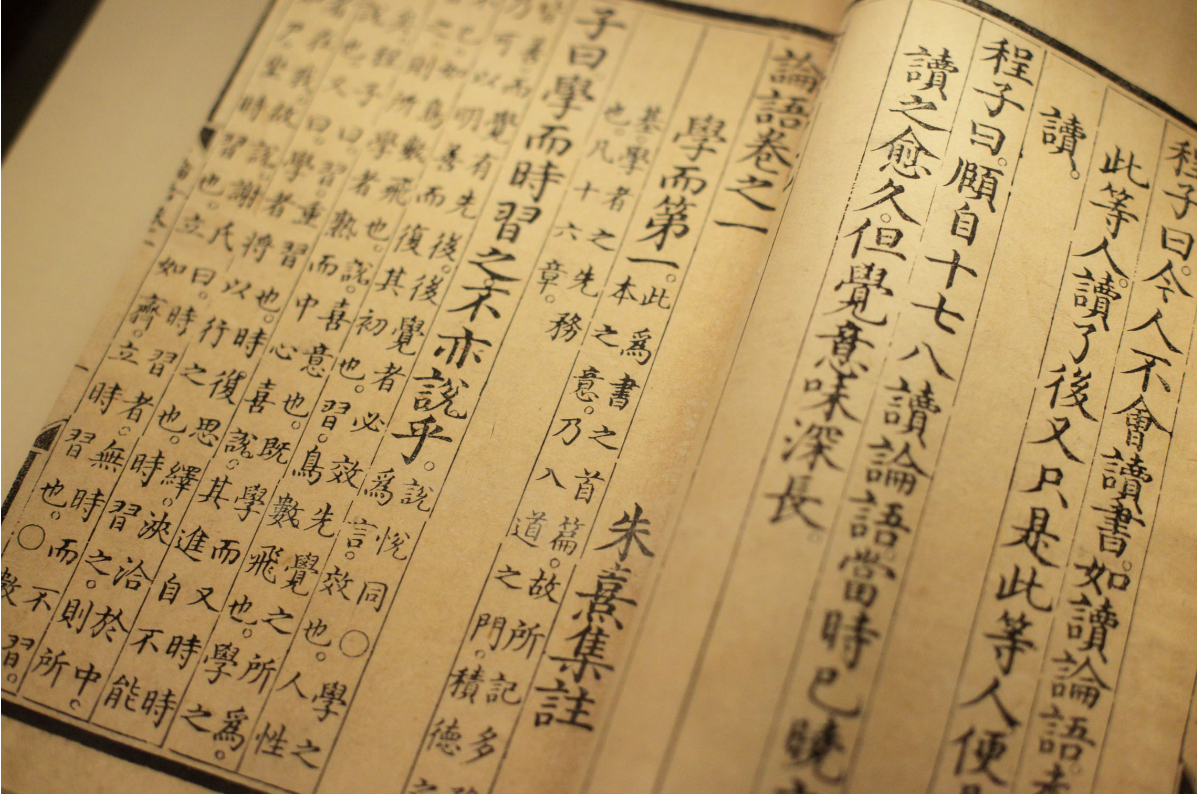 程子曰。今人不會讀書。如讀論語。
此等人。讀了後又只是此等人。便
讀。
程子曰。頤自十七八讀論語。當時已曉
讀之愈久。但覺意味深長。
論語卷之一
朱熹集註
學而第一。此爲書之首篇。故所記多
本之意。乃入道之門。積德之
基學者之先務
也。凡十六章。
子曰學而時習之。不亦說乎。說悅同○學之
爲言。效也。人性
皆善而覺有先後。後覺者必效先覺之所爲。
乃可以明善而復其初也。習。鳥數飛也。學之
已。如鳥數飛也。說。喜意也。既學而又時時
之。則所學者熟。而中心喜說。其進自不能
矣。程子曰。習。重習也。時復思繹。浹洽於中。
說也。又曰。學者。將以行之也。時習之。則所
在我。故說。謝氏曰。時習者。無時而不習。
尸。坐時習也。立如齊。立時習也。○